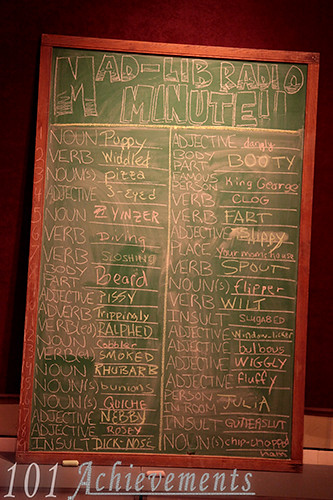 MAD-LIB RADIO
MINUTE!!
NOUN Puppy
VERB Widdled
NOUN(S) pizza
ADJECTIVE 3-eyed
NOUN YINZER
VERB Diving
VERB SLOSHING
BODY PART Beard
ADJECTIVE PISSY
ADVERB Trippingly
VERB(ED) RALPHED
NOUN Cobbler
VERB(ED) SMOKED
NOUN RHUBARB
NOUN(S) bunions
NOUN(S) QUICHE
ADJECTIVE NEBBY
ADJECTIVE ROPEY
INSULT DICK-NOSE
ADJECTIVE dangly
BODY PART BOOTY
FAMOUS PERSON King George
VERB CLOG
VERB FART
ADJECTIVE Slippy
PLACE Your mom's house
VERB SPOUT
NOUN(S) flipper
VERB WILT
INSULT
ADJECTIVE window-licker
ADJECTIVE bulbous
ADJECTIVE WIGGLY
ADJECTIVE Fluffy
PERSON IN ROOM JULIA
INSULT GUTTERSLUT
NOUN(S) chip-chopped ham
101 Achievements